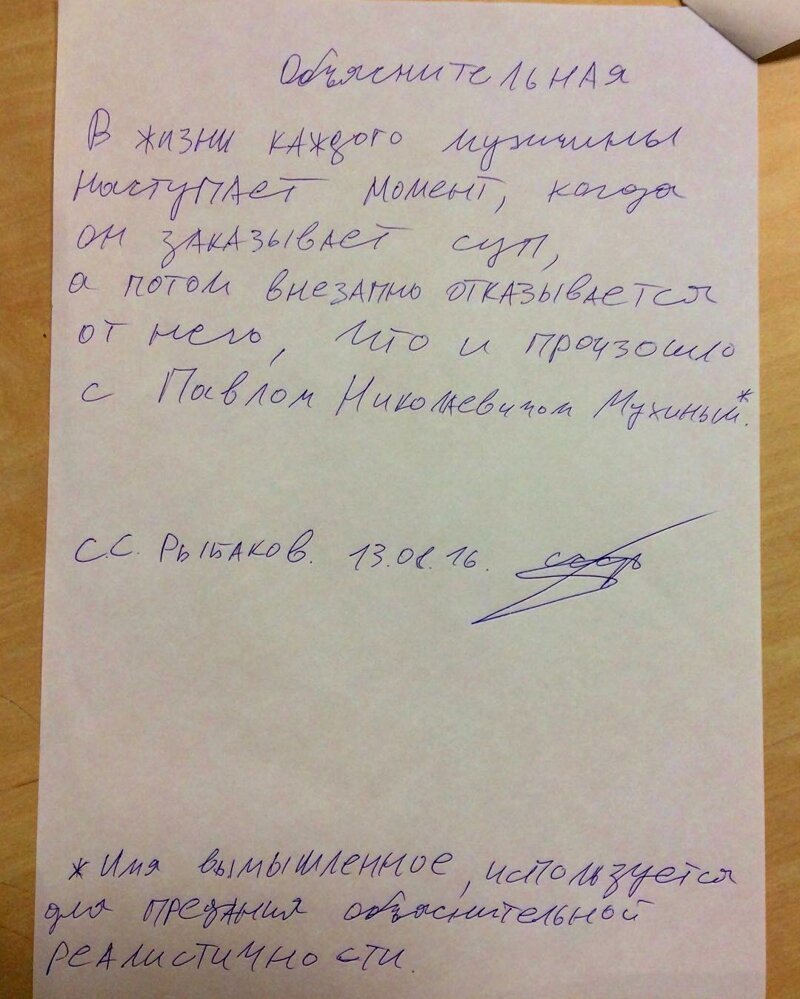 Объяснительная
В жизни каждого мужчины
наступает момент, когда
он заказывает суп,
а потом внезапно отказывается
от него, что и произошло
с Павлом Николаевичом Мухиным*.
С.С. Рыбаков. 13.08.16.
*Имя вымышленное, используется
для предания объяснительной
реалистичности.